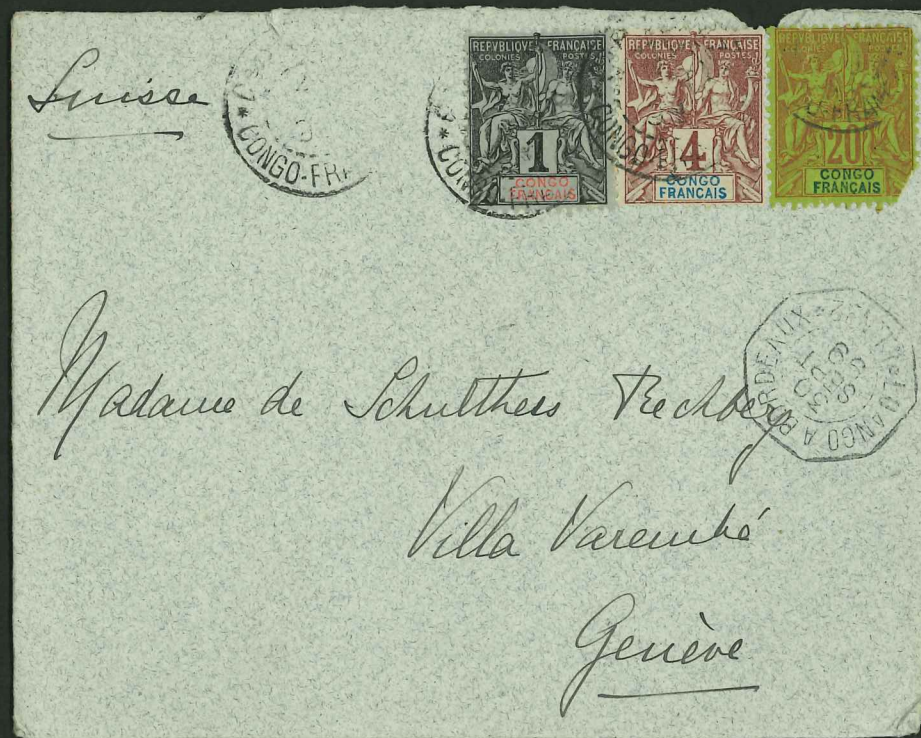 Suisse
CONGO-FR
REPVBLIQVE FRANÇAISE
COLONIES POSTES
1
CONGO
FRANÇAIS
REPVBLIQVE FRANÇAISE
COLONIES POSTES
4
CONGO
FRANÇAIS
20
CONGO
FRANÇAIS
LOANGO A BORDEAUX
Madame de Schulthess Rechberg
Villa Varembé
Genève